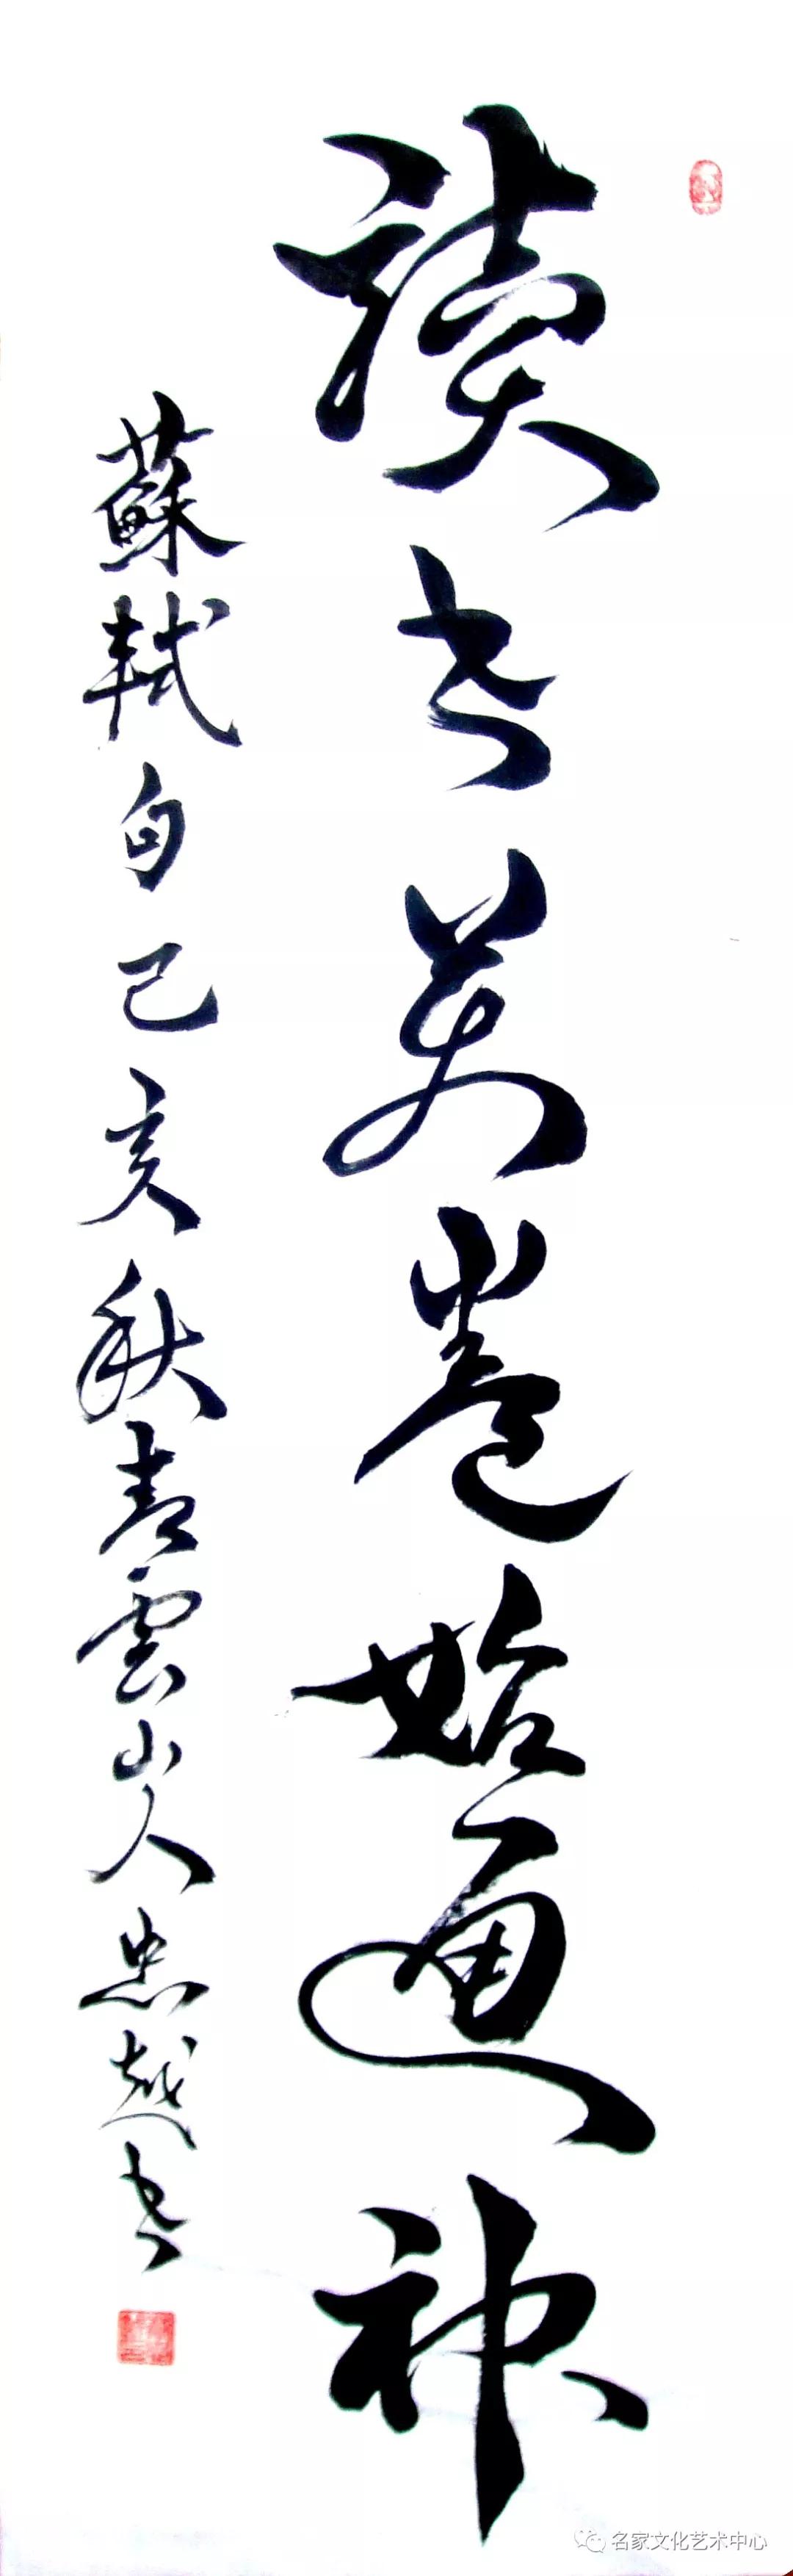 讀書萬卷始通神
蘇軾句己亥秋青雲山人忠越書
名家文化艺术中心